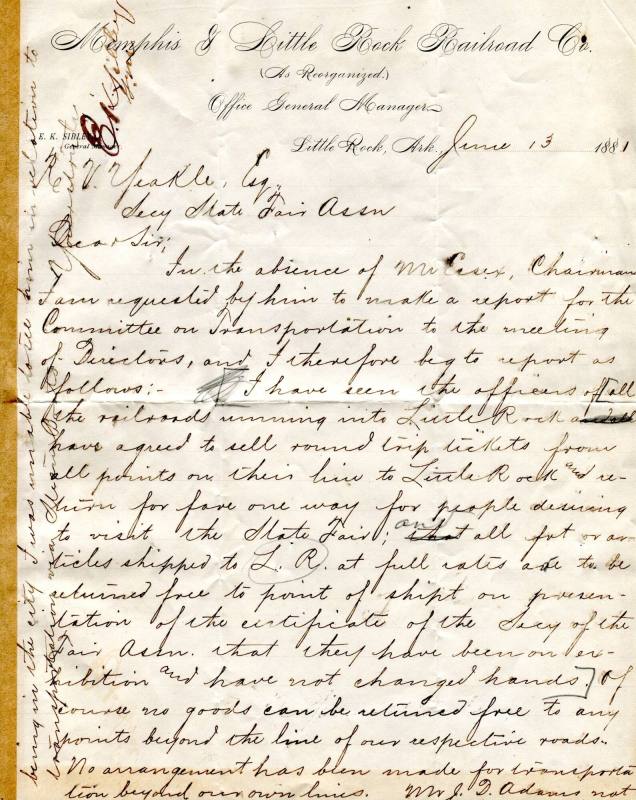 Memphis & Little Rock Railroad Co.
(As Reorganized.)
Office General Manager
E. K. SIBLEY
General Manager.
Little Rock, Ark. June 13 1881
R. V. Yeakle, Esq.,
Secy State Fair Assn
Dear Sir;
In the absence of Mr Essex, Chairman
I am requested by him to make a report for the
Committee on Transportation to the meeting
of Directors, and I therefore beg to report as
follows:- [I have seen the officers of all
the railroads running into Little Rock and all
have agreed to sell round trip tickets from
all points on their line to Little Rock and re-
turn for fare one way for people desiring
to visit the State Fair; that and all frt or ar-
ticles shipped to L. R. at full rates are to be
returned free to point of shipt on presen-
tation of the certificate of the Secy of the
Fair Assn. that they have been on ex-
hibition and have not changed hands.] Of
course no goods can be returned free to any
points beyond the line of our respective roads.
No arrangement has been made for transporta
tion beyond our own lines. Mr J. D. Adams not
being in the city I was unable to see him in relation to
transportation via
E K Sibley